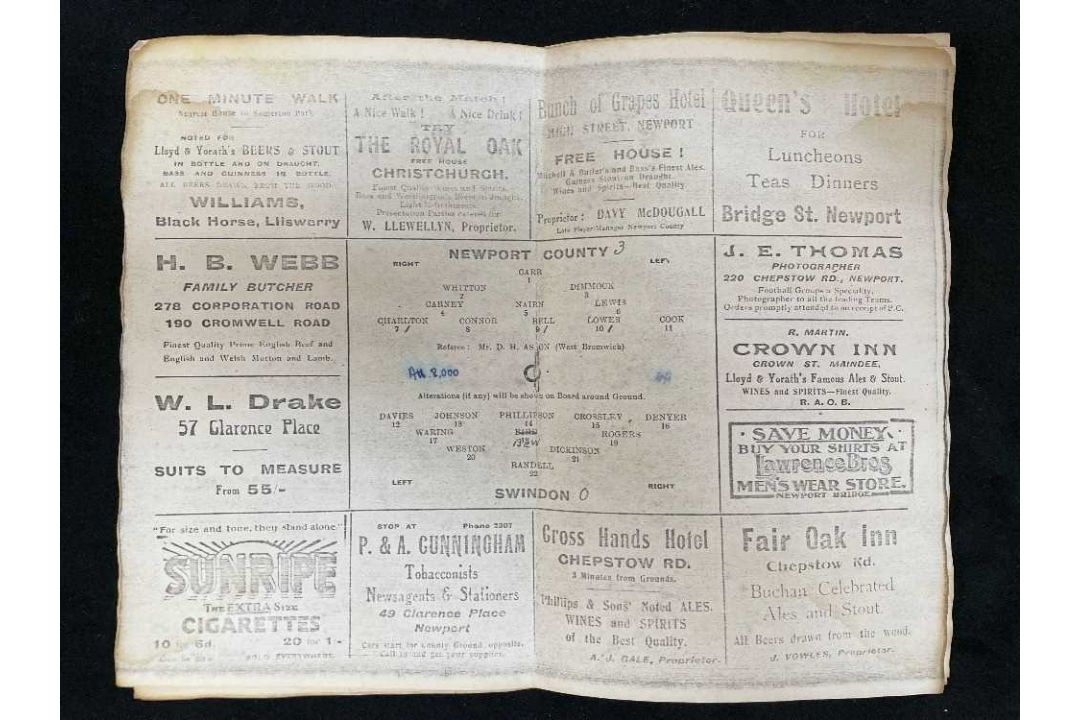 ONE MINUTE WALK
Nearest House to Somerton Park
NOTED FOR
Lloyd & Yorath's BEERS & STOUT
IN BOTTLE AND ON DRAUGHT.
BASS AND GUINNESS IN BOTTLE.
ALL BEERS DRAWN FROM THE WOOD.
WILLIAMS,
Black Horse, Lliswerry
After the Match!
A Nice Walk! A Nice Drink!
TRY
THE ROYAL OAK
FREE HOUSE
CHRISTCHURCH.
Finest Quality Wines and Spirits.
Bass and Worthington's Beers on draught.
Light Refreshments.
Presentation Parties catered for
W. LLEWELLYN, Proprietor.
Bunch of Grapes Hotel
HIGH STREET, NEWPORT
FREE HOUSE!
Mitchell & Butler's and Bass's Finest Ales.
Guiness Stout on Draught.
Wines and Spirits—Best Quality.
Proprietor: DAVY McDOUGALL
Late Player-Manager Newport County
Queen's Hotel
FOR
Luncheons
Teas Dinners
Bridge St. Newport
H. B. WEBB
FAMILY BUTCHER
278 CORPORATION ROAD
190 CROMWELL ROAD
Finest Quality Prime English Beef and
English and Welsh Mutton and Lamb.
W. L. Drake
57 Clarence Place
SUITS TO MEASURE
From 55/-
NEWPORT COUNTY 3
RIGHT LEFT
CARR
1
WHITTON DIMMOCK
2 3
CARNEY NAIRN LEWIS
4 5 6
CHARLTON CONNOR BELL LOWES COOK
7 / 8 9 / 10 / 11
Referee: Mr. D. H. ASSON (West Bromwich)
Att 8,000
Alterations (if any) will be shown on Board around Ground.
DAVIES JOHNSON PHILLIPSON CROSSLEY DENYER
12 13 14 15 16
WARING ROGERS
17 19
WESTON DICKINSON
20 21
RANDELL
22
LEFT RIGHT
SWINDON 0
J. E. THOMAS
PHOTOGRAPHER
220 CHEPSTOW RD., NEWPORT.
Football Groups a Speciality.
Photographer to all the leading Teams.
Orders promptly attended to on receipt of P.C.
R. MARTIN.
CROWN INN
CROWN ST. MAINDEE,
Lloyd & Yorath's Famous Ales & Stout.
WINES and SPIRITS—Finest Quality.
R. A. O. B.
SAVE MONEY
BUY YOUR SHIRTS AT
Lawrence Bros
MEN'S WEAR STORE.
NEWPORT BRIDGE
"For size and tone, they stand alone"
SUNRIPE
THE EXTRA SIZE
CIGARETTES
10 for 6d. 20 for 1/-
SOLD EVERYWHERE
STOP AT Phone 2307
P. & A. CUNNINGHAM
Tobacconists
Newsagents & Stationers
49 Clarence Place
Newport
Cars start for County Ground opposite.
Call in and get your supplies.
Cross Hands Hotel
CHEPSTOW RD.
3 Minutes from Grounds.
Phillips & Sons' Noted ALES.
WINES and SPIRITS
of the Best Quality.
A. J. GALE, Proprietor.
Fair Oak Inn
Chepstow Rd.
Buchan Celebrated
Ales and Stout
All Beers drawn from the wood.
J. VOWLES, Proprietor.